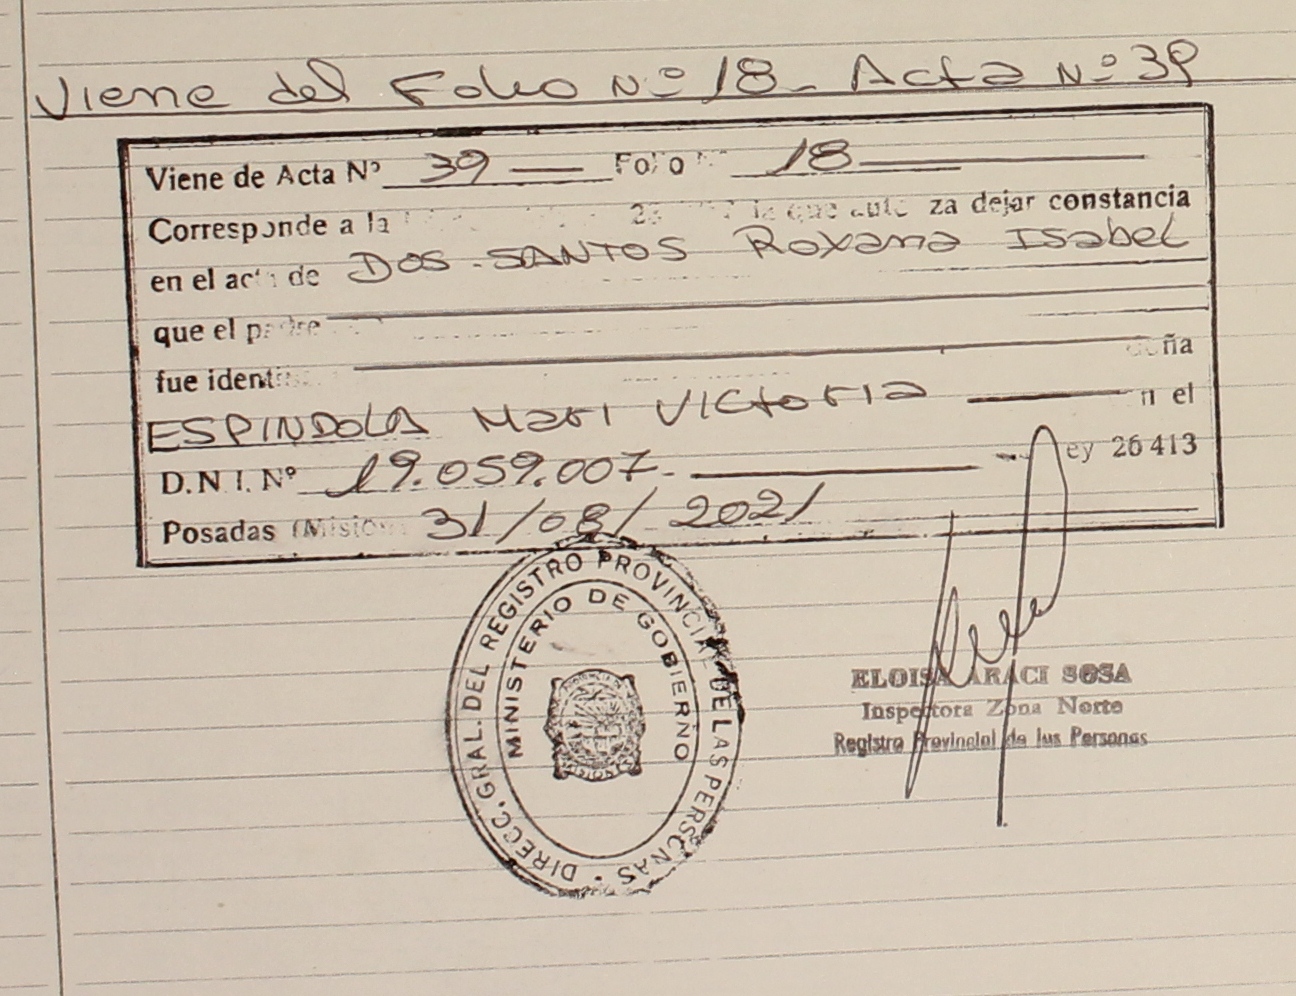 Viene del Folio Nº 18 - Acta Nº 39
Viene de Acta Nº 39 Folio 18
Corresponde a la que za dejar constancia
en el acta de DOS SANTOS Roxana Isabel
que el padre
fue ña
ESPINDOLA Mari Victoria el
D.N.I. Nº 19.059.007.- ey 26413
Posadas (Mision 31/08/2021
DIRECC. GRAL. DEL REGISTRO PROVINCIAL DE LAS PERSONAS
MINISTERIO DE GOBIERNO
MISIONES
ELOISA ARACI SOSA
Inspectora Zona Norte
Registro Provincial de las Personas